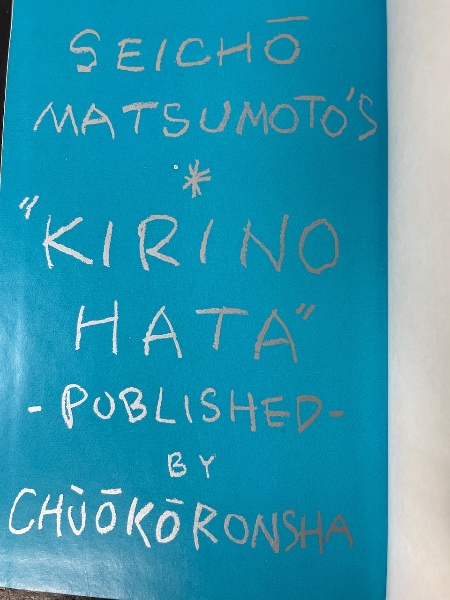 SEICHŌ
MATSUMOTO'S
*
"KIRINO
HATA"
-PUBLISHED-
BY
CHŪŌKŌRONSHA